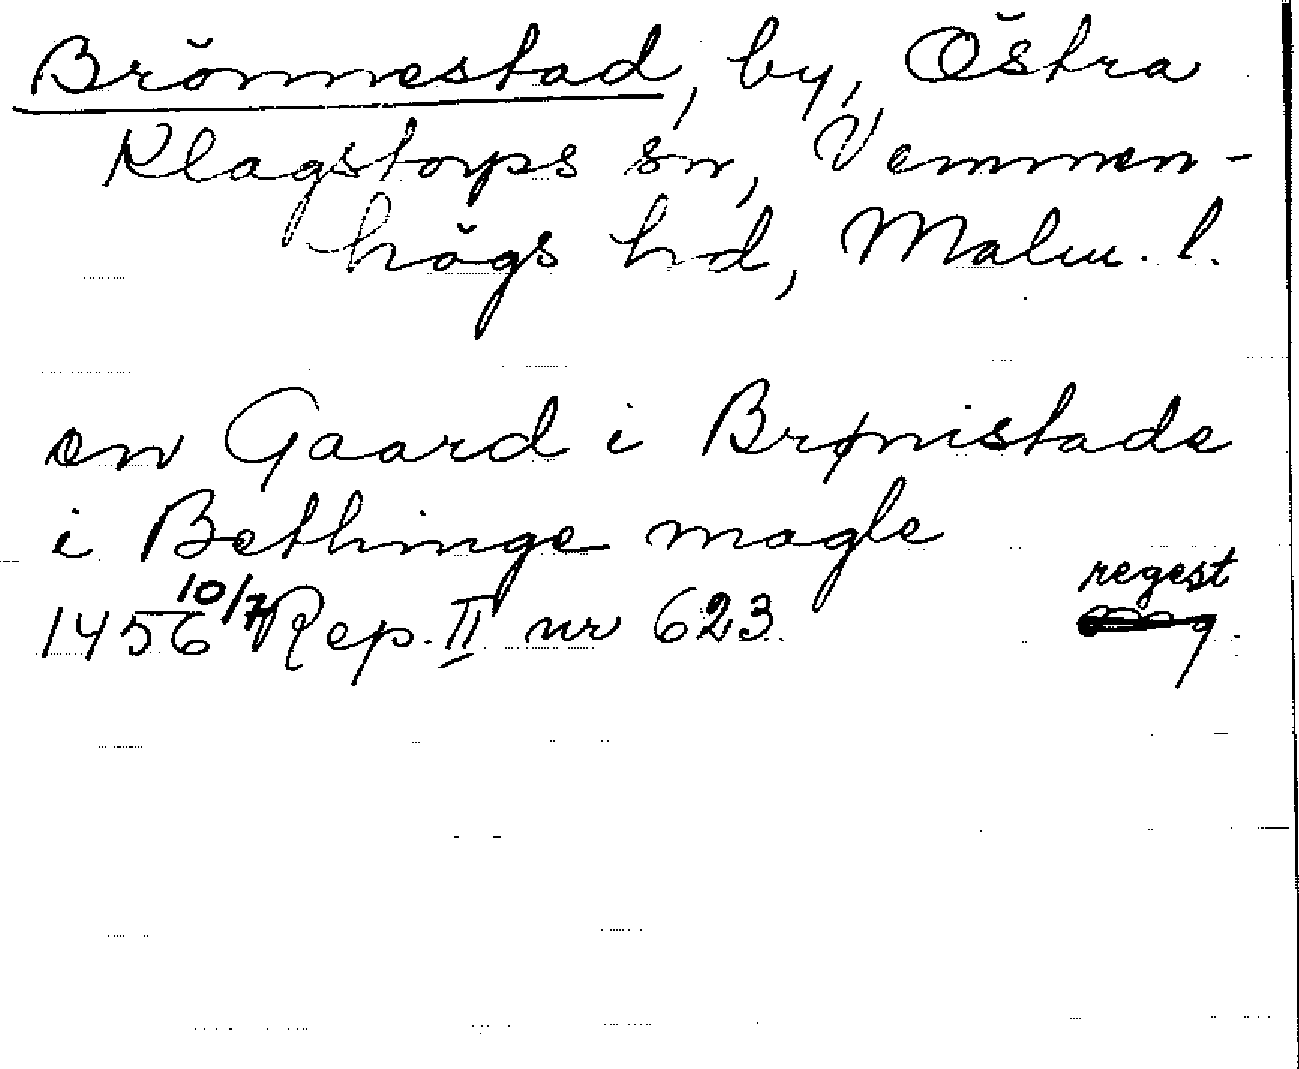 Brönnestad, by, Östra
Klagstorps sn, Vemmen-
högs hd, Malm. l.
en Gaard i Brønistade
i Bethinge magle
1456 10/7 Rep. II nr 623.
regest